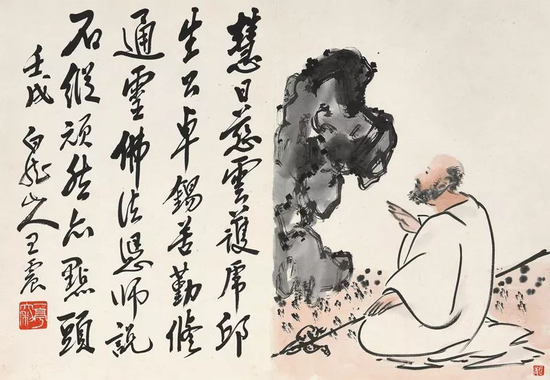 慧日慈雲護虎邱
生公卓錫苦勤修
通靈佛法憑師說
石縱頑然亦點頭
壬戌 白龍山人王震